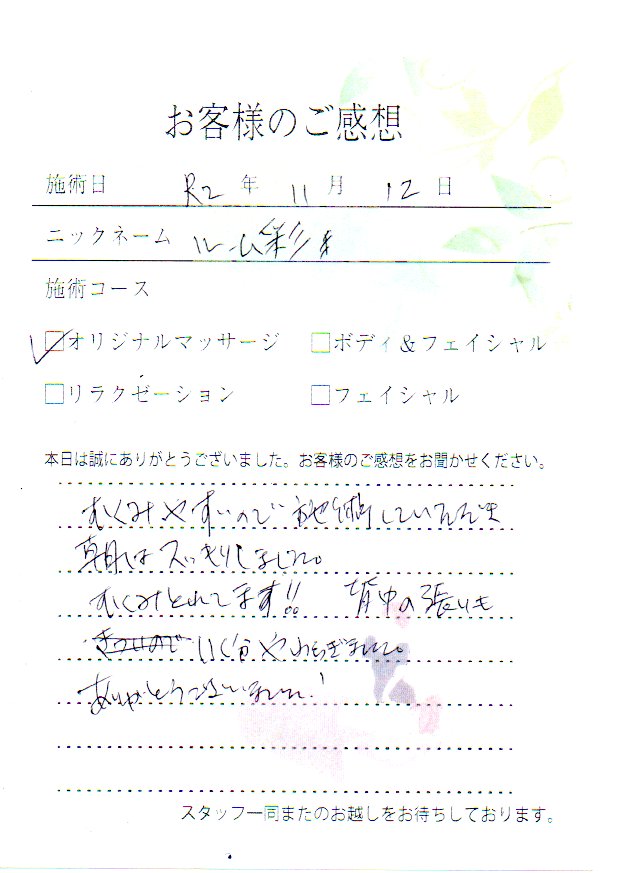 お客様のご感想
施術日 R2 年 11 月 12 日
ニックネーム ルーム彩
施術コース
□オリジナルマッサージ □ボディ&フェイシャル
□リラクゼーション □フェイシャル
本日は誠にありがとうございました。お客様のご感想をお聞かせください。
むくみやすいので 施術していただき
朝はスッキリしました。
むくみとれてます!! 背中の張りも
きついので いく分やわらぎました。
ありがとうございました!
スタッフ一同またのお越しをお待ちしております。